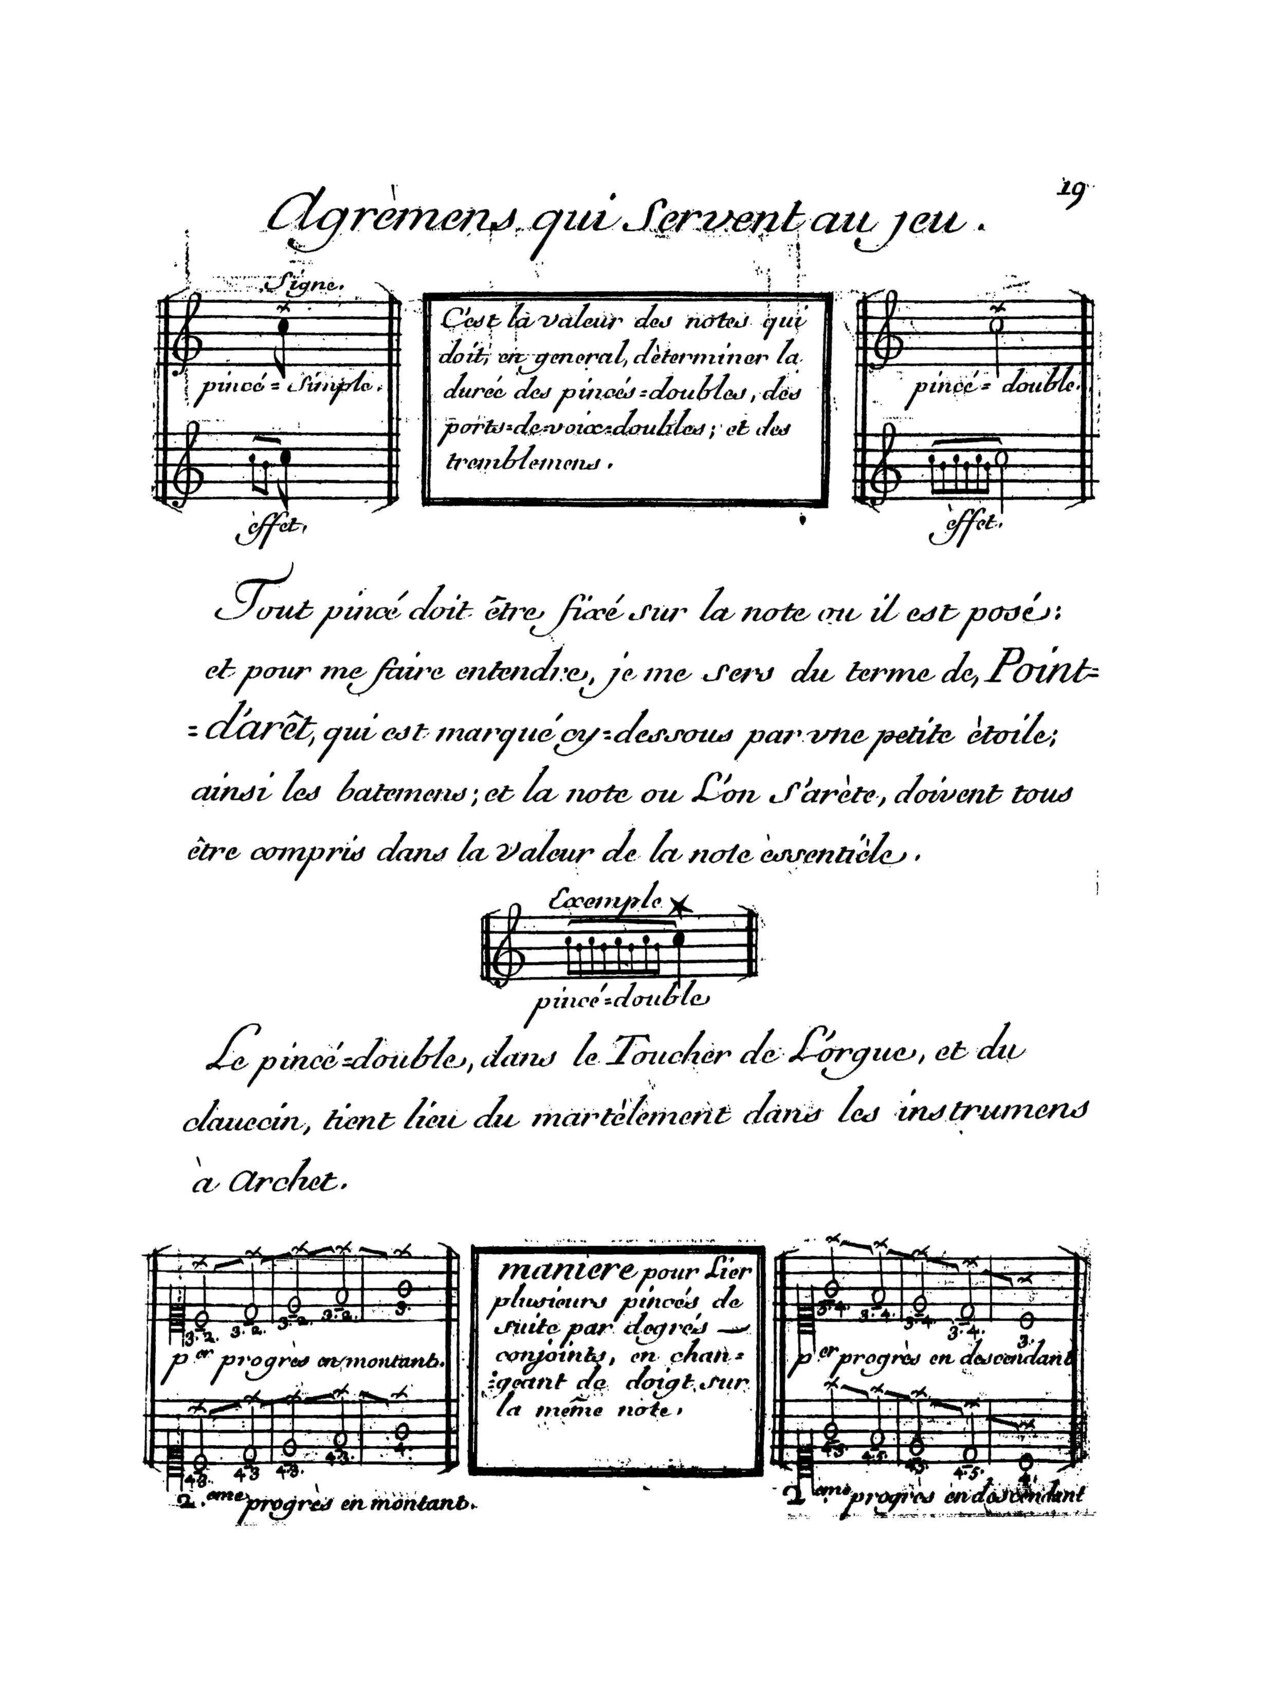 19
Agrèmens qui Servent au jeu.
Signe.
pincé=simple.
èffet.
C'est la valeur des notes qui
doit, en general, dèterminer la
durée des pincés=doubles, des
ports=de=voix=doubles; et des
tremblemens.
pincé=double.
èffet.
Tout pincé doit être fixé sur la note ou il est posé:
et pour me faire entendre, je me sers du terme de, Point=
=d'arêt, qui est marqué cy=dessous par vne petite ètoile;
ainsi les batemens; et la note ou L'on s'arète, doivent tous
être compris dans la valeur de la note èssentièle.
Exemple
pincé=double
Le pincé=double, dans le Toucher de L'orgue, et du
clauecin, tient lieu du martèlement dans les instrumens
à Archet.
3.2. 3.2. 3.2. 3.2. 3.
per progrès en montant.
4.3. 4.3 4.3. 4.3. 4.
2.eme progrès en montant.
maniere pour Lier
plusieurs pincés de
suite par degrés
conjoints, en chan=
=geant de doigt sur
la même note.
3.4. 3.4. 3.4. 3.4. 3.
per progrès en descendant
4.5. 4.5. 4.5. 4.5. 4.
2eme progrès en descendant